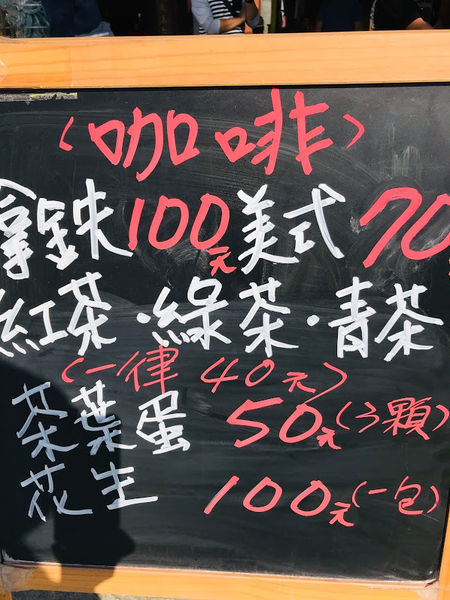 (咖啡)
拿鉄100元美式70
紅茶·綠茶·青茶
(一律 40元)
茶葉蛋 50元(3顆)
花生 100元(一包)